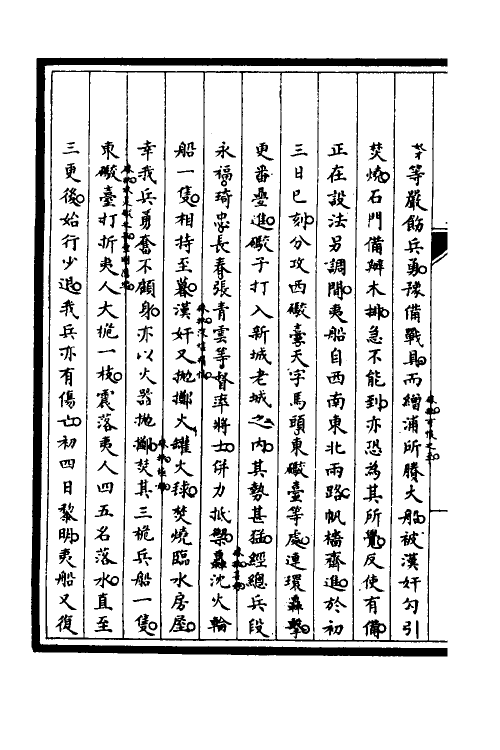 等嚴飭兵勇豫備戰具而繒浦所賸大船被漢奸勾引
焚燒石門備辦木排急不能到亦恐為其所覺反使有備
正在設法另調間夷船自西南東北兩路帆檣齊進於初
三日巳刻分攻西礮臺天字馬頭東礮臺等處連環轟擊
更番疊進礮子打入新城老城之內其勢甚猛經總兵段
永福琦忠長春張青雲等督率將士併力抵擊轟沈火輪
船一隻相持至暮漢奸又拋擲火罐火球焚燒臨水房屋
幸我兵勇奮不顧身亦以火器拋擲焚其三桅兵船一隻
東礮臺打折夷人大桅一枝震落夷人四五名落水直至
三更後始行少退我兵亦有傷亡初四日黎明夷船又復